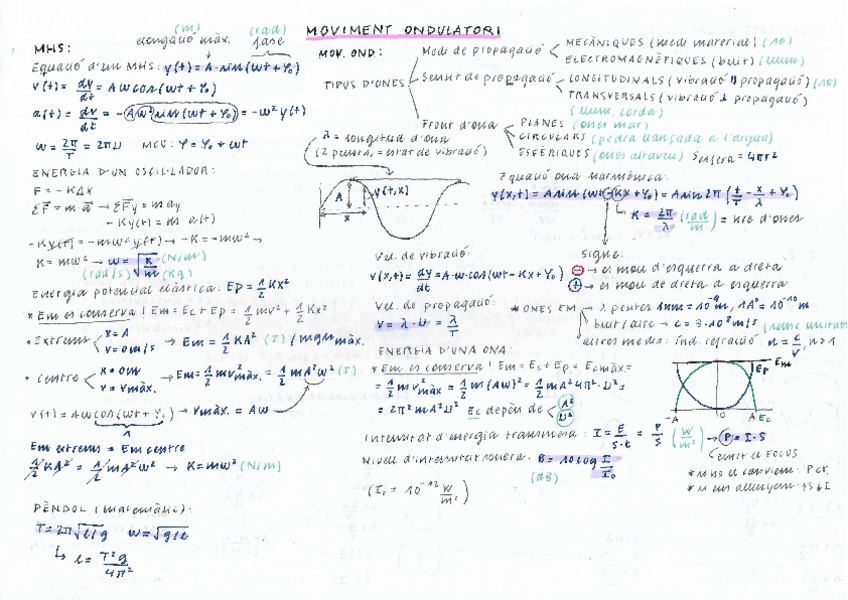 MOVIMENT ONDULATORI
MHS:
(m) (rad)
elongació màx. fase
Equació d'un MHS: y(t) = A sin(ωt + φ₀)
v(t) = dy/dt = Aω cos(ωt + φ₀)
a(t) = dv/dt = -Aω² sin(ωt + φ₀) = -ω² y(t)
ω = 2π/T = 2πν MCU: φ = φ₀ + ωt
ENERGIA D'UN OSCIL·LADOR:
F = -KΔx
ΣF = m a → ΣFy = m ay
- Ky(t) = m a(t)
- Ky(t) = -mω² y(t) → -K = -mω² →
K = mω² → ω = √(K/m) (N/m)
(rad/s) (Kg)
Energia potencial elàstica: Ep = 1/2 Kx²
* Em es conserva! Em = Ec + Ep = 1/2 mv² + 1/2 Kx²
• Extrems x = A
v = 0 m/s → Em = 1/2 KA² (J) / màx.
• Centre x = 0m
v = vmàx. → Em = 1/2 mv²màx. = 1/2 mA²ω² (J)
v(t) = Aω cos(ωt + φ₀) → vmàx. = Aω
1
Em extrems = Em centre
1/2 KA² = 1/2 mA²ω² → K = mω² (N/m)
PÈNDOL (matemàtic):
T = 2π√l/g ω = √g/l
↳ l = T²g/4π²
MOV. OND:
TIPUS D'ONES
Medi de propagació
MECÀNIQUES (medi material) (so)
ELECTROMAGNÈTIQUES (buit) (llum)
Sentit de propagació
LONGITUDINALS (vibració ∥ propagació) (so)
TRANSVERSALS (vibració ⊥ propagació)
(llum, corda)
Front d'ona
PLANES (ones mar)
CIRCULARS (pedra llançada a l'aigua)
ESFÈRIQUES (ones altaveu) Sesfera = 4πr²
λ = longitud d'ona
(2 punts, = estat de vibració)
A y(t,x)
x
Equació ona harmònica:
y(x,t) = A sin(ωt - Kx + φ₀) = A sin 2π(t/T - x/λ + φ₀)
↳ K = 2π/λ (rad/m) = nre d'ones
Signe:
⊖ → es mou d'esquerra a dreta
⊕ → es mou de dreta a esquerra
Vel. de vibració:
v(x,t) = dy/dt = A·ω·cos(ωt - Kx + φ₀)
Vel. de propagació:
v = λ·ν = λ/T
* ONES EM → λ petites 1nm = 10⁻⁹ m, 1A° = 10⁻¹⁰ m
buit/aire → c = 3·10⁸ m/s
altres medis: índ. refracció n = c/v, n > 1
ENERGIA D'UNA ONA:
* Em es conserva! Em = Ec + Ep = Ecmàx. =
= 1/2 mv²màx = 1/2 m(Aω)² = 1/2 mA²4π²·ν² =
= 2π²mA²ν² Ec depèn de A²
ν²
Em
Ep
-A 0 A Ec
Intensitat d'energia transmesa: I = E/S·t = P/S (W/m²) → P = I·S
emet el FOCUS
Nivell d'intensitat sonora: B = 10 log I/I₀
(dB)
(I₀ = 10⁻¹² W/m²)
* si no et canviem: P ct.
* si ens allunyem: ↑S ↓I